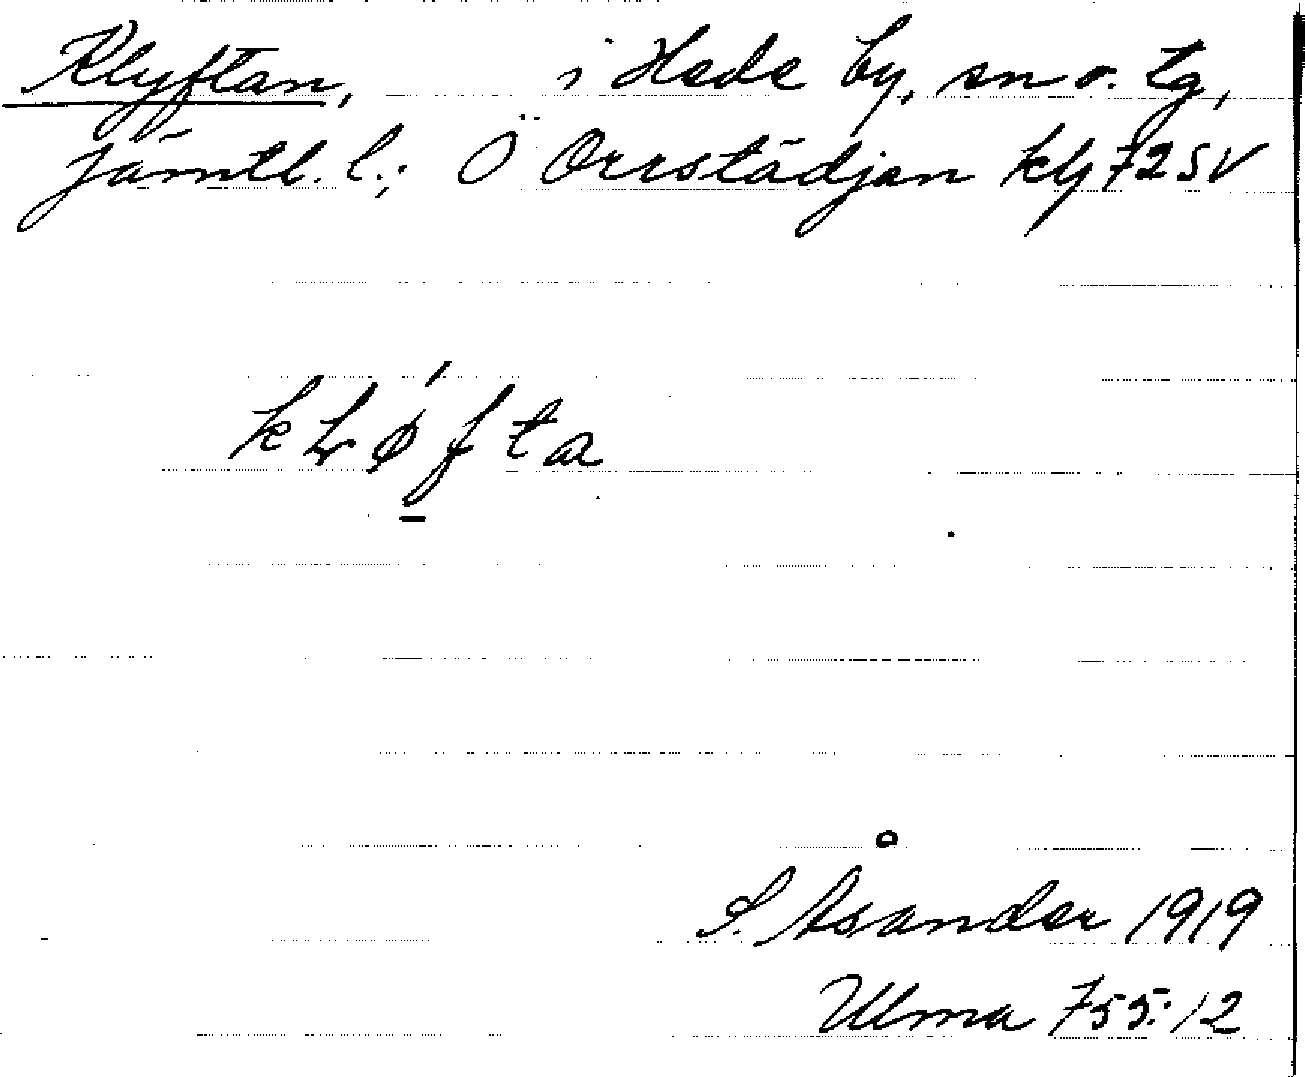 Klyftan, i Hede by, sn o. tg,
Jämtl. l.; Ö Orrstädjan kbl 72 SV
kLøfta
S. Åsander 1919
Ulma 755:12